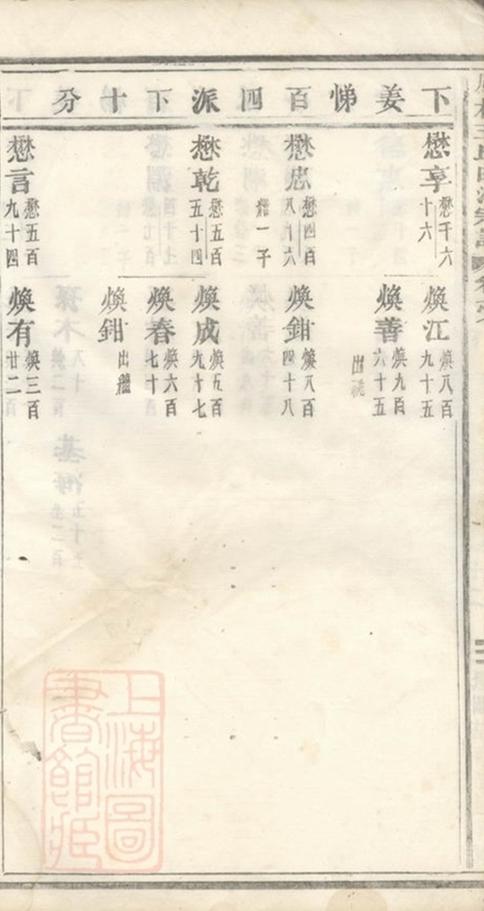 下姜悌百四派下十分
懋享
懋千六
十六
煥江
煥八百
九十五
煥善
煥九百
六十五
出祧
懋忠
懋四百
八九六
繼一子
煥鉗
煥八百
四十八
懋乾
懋五百
五十四
煥成
煥五百
九十七
煥春
煥六百
七十百
煥鉗
出繼
懋言
懋五百
九十四
煥有
煥三百
廿二百
上海圖書館藏